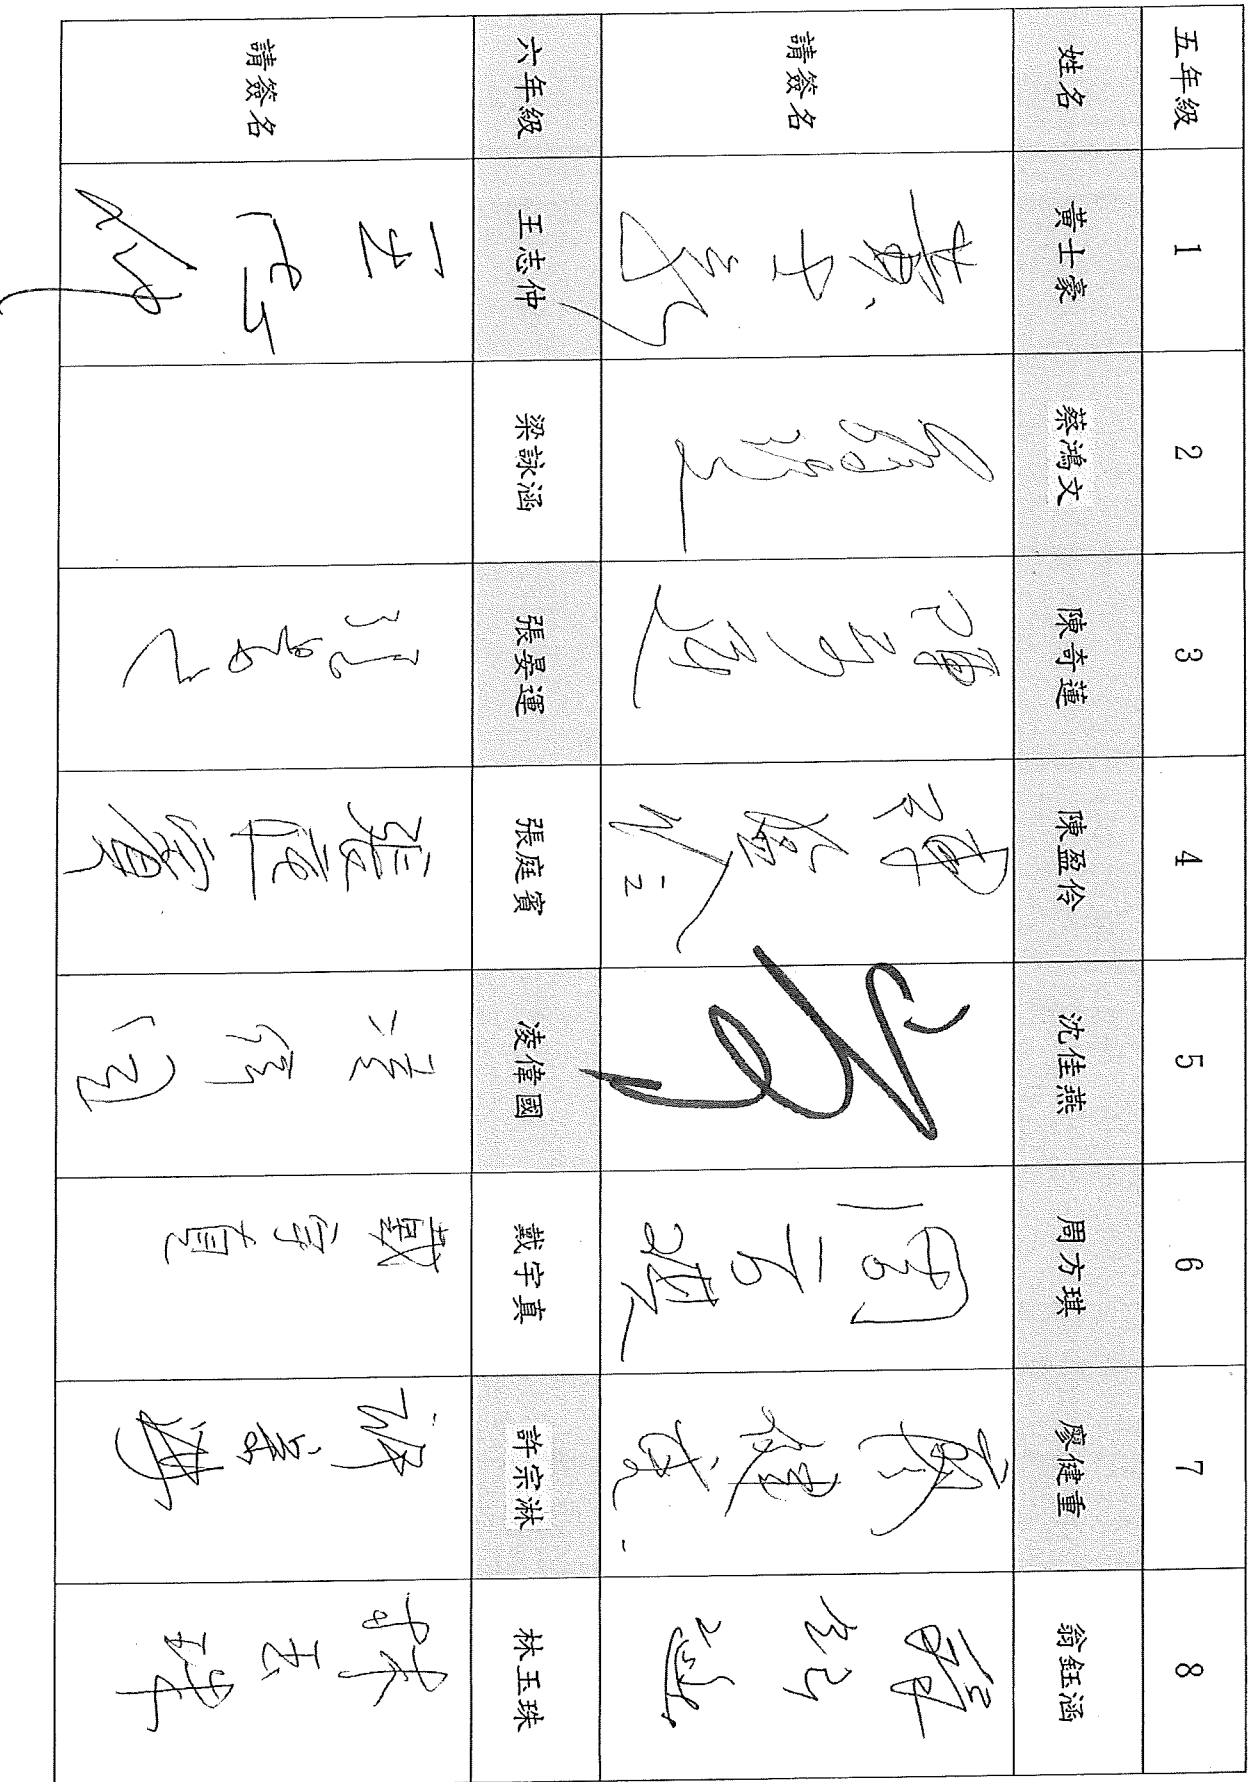 五年級 1 2 3 4 5 6 7 8
姓名 黃士豪 蔡鴻文 陳奇蓮 陳盈伶 沈佳燕 周方琪 廖健重 翁鈺涵
請簽名 黃士豪 陳奇蓮 陳盈伶 周方琪 廖健重
六年級 王志仲 梁詠涵 張晏運 張庭賓 凌偉國 戴宇真 許宗淋 林玉珠
請簽名 王志仲 張庭賓 凌偉國 戴宇真 許宗淋 林玉珠